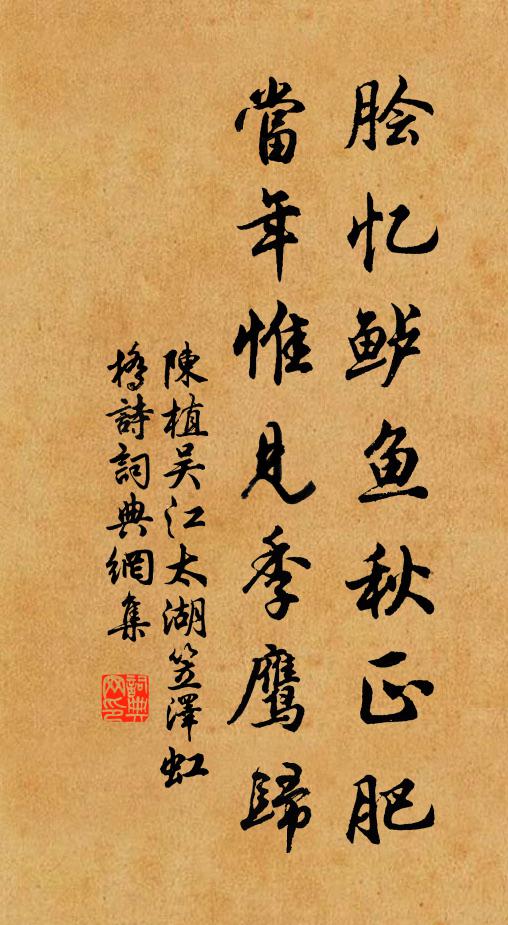 脍忆鲈鱼秋正肥
當年惟见季鹰歸
陳植吴江太湖笠澤虹
橋詩詞典網集
詞典
网印